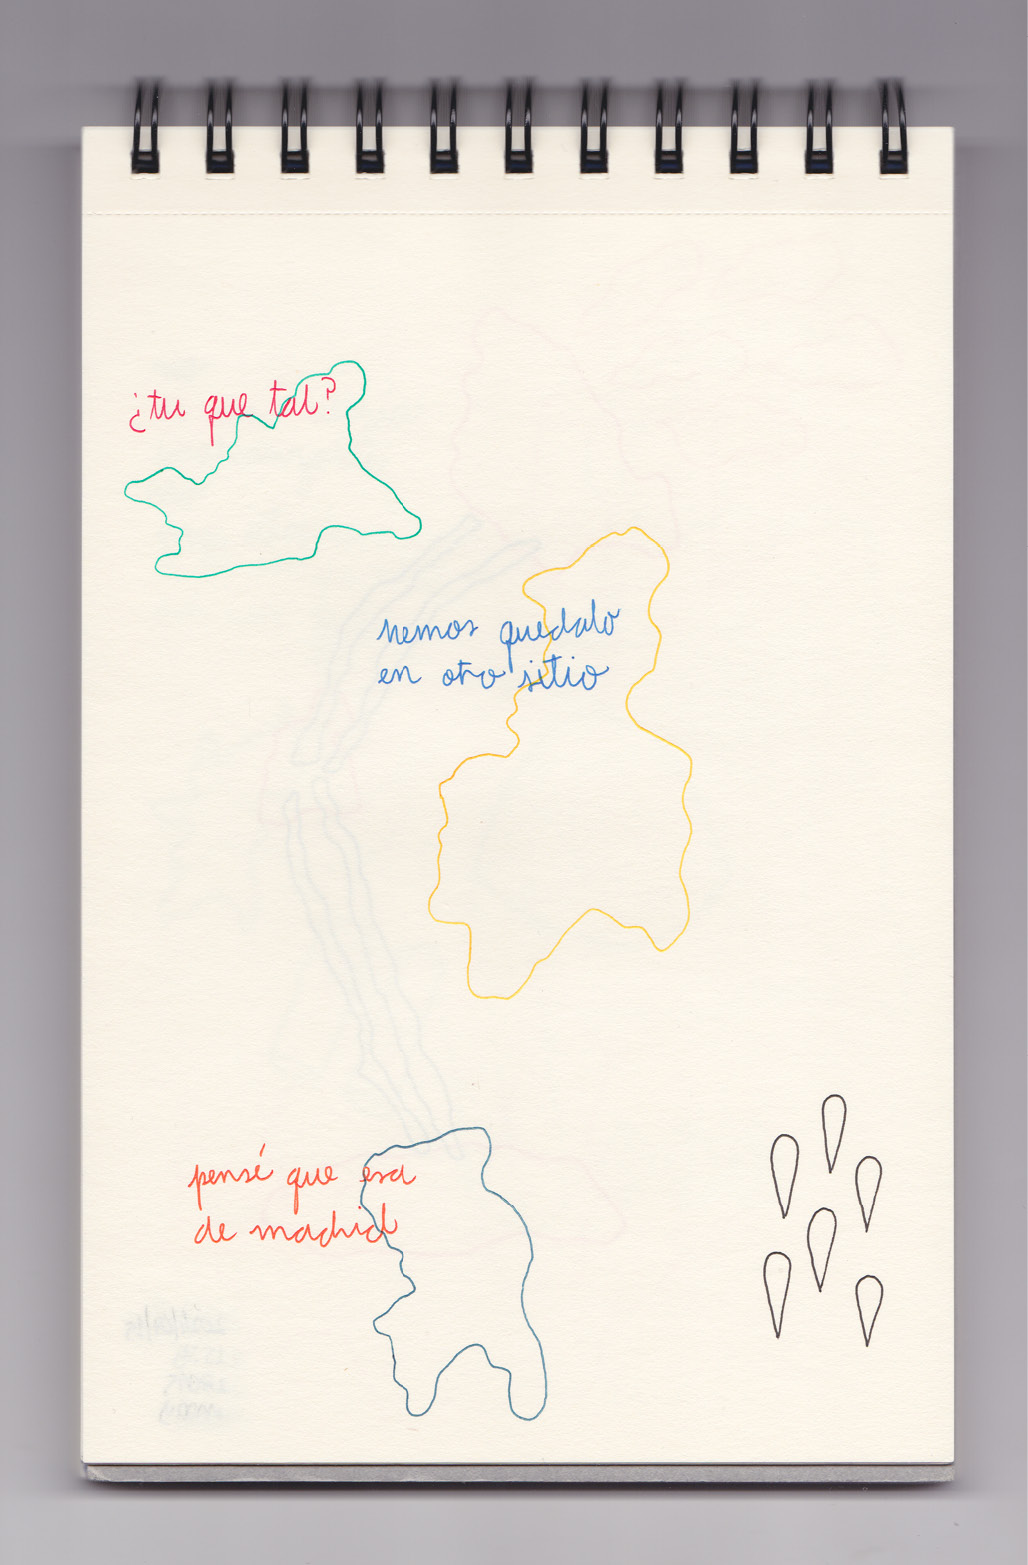 ¿tu que tal?
hemos quedado
en otro sitio
pensé que era
de madrid